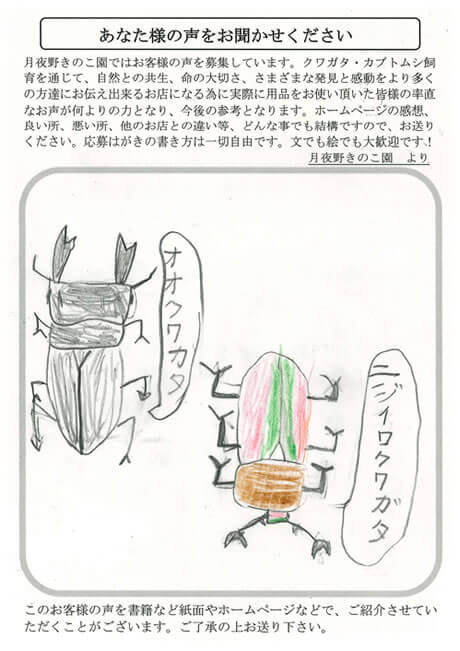 あなた様の声をお聞かせください
月夜野きのこ園ではお客様の声を募集しています。クワガタ・カブトムシ飼
育を通じて、自然との共生、命の大切さ、さまざまな発見と感動をより多く
の方達にお伝え出来るお店になる為に実際に用品をお使い頂いた皆様の率直
なお声が何よりの力となり、今後の参考となります。ホームページの感想、
良い所、悪い所、他のお店との違い等、どんな事でも結構ですので、お送り
ください。応募はがきの書き方は一切自由です。文でも絵でも大歓迎です！
月夜野きのこ園　より
オオクワガタ
ニジイロクワガタ
このお客様の声を書籍など紙面やホームページなどで、ご紹介させてい
ただくことがございます。ご了承の上お送り下さい。